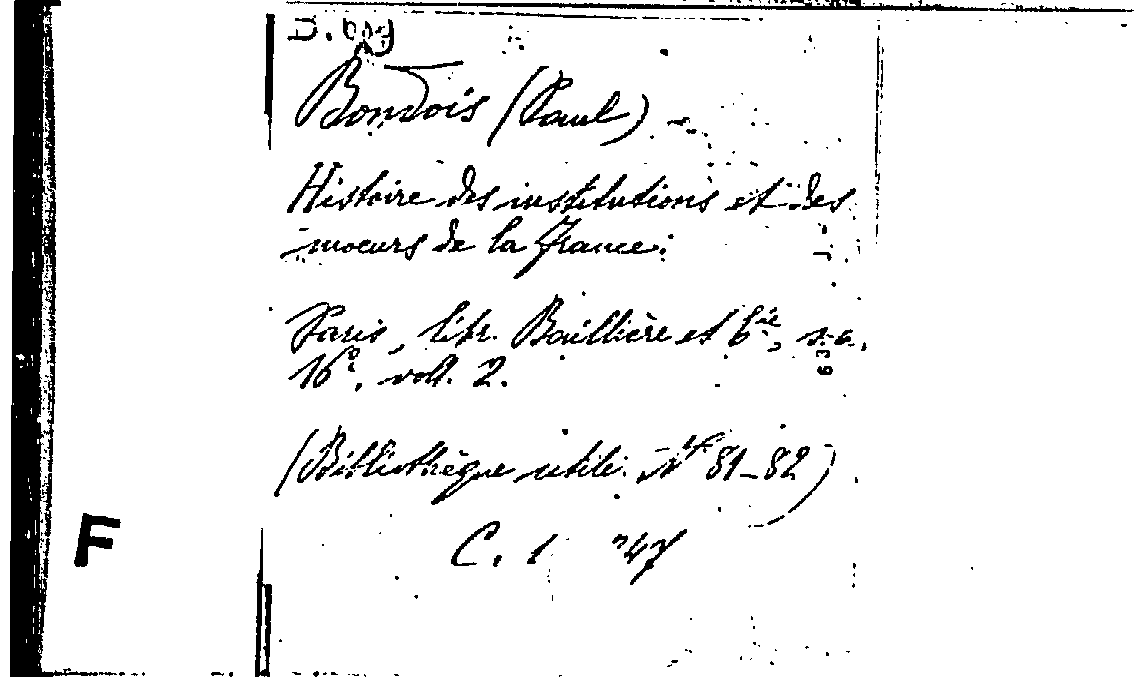 Bondois (Paul)
Histoire des institutions et des
moeurs de la France.
Paris, libr. Baillière et Cie, s. a.
16º, voll. 2.
(Bibliothèque utile. Nº 81-82)
C. 1 47
F
63